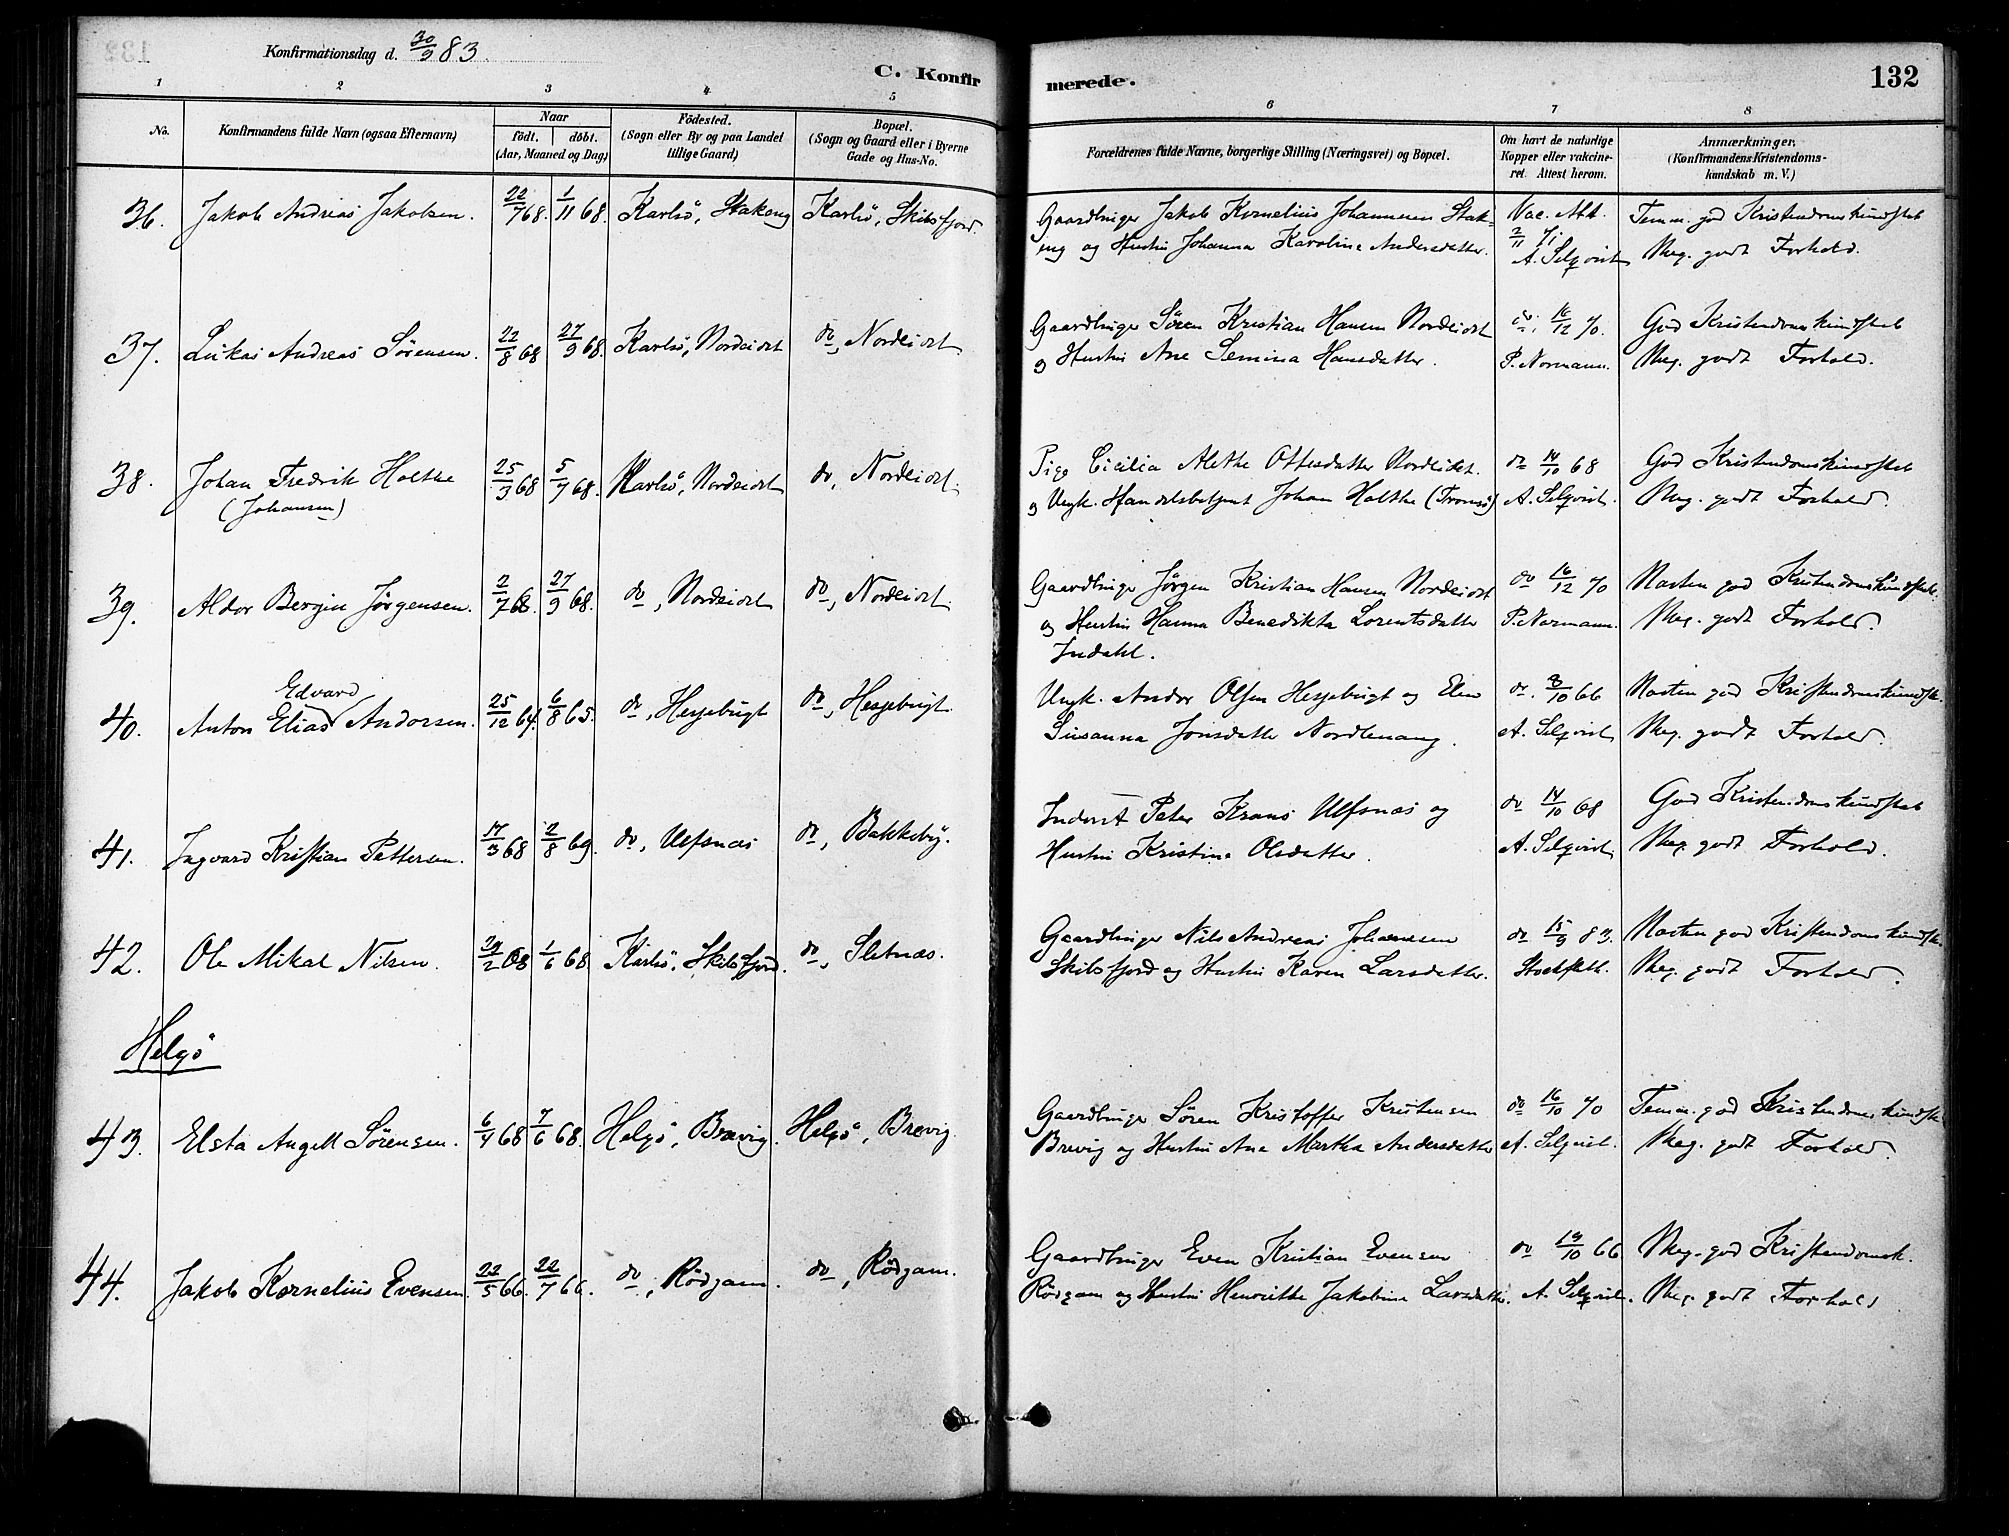 Konfirmationsdag d. 30/9 83.
C. Konfirmerede.
132
1 2 3 4 5 6 7 8
No.
Konfirmandens fulde Navn (ogsaa Efternavn)
Naar
födt. döbt.
(Aar, Maaned og Dag)
Födested.
(Sogn eller By og paa Landet
tillige Gaard)
Bopæl.
(Sogn og Gaard eller i Byerne
Gade og Hus-No.
Forældrenes fulde Navne, borgerlige Stilling (Næringsvei) og Bopæl.
Om havt de naturlige
Kopper eller vakcine-
ret. Attest herom.
Anmærkninger.
(Konfirmandens Kristendoms-
kundskab m. V.)
36. Jakob Andreas Jakobsen. 22/7 68. 1/11 68. Karlsö, Stakeng Karlsö, Skibsfjord.
Gaardbruger Jakob Kornelius Johannesen Stak-
eng og Hustru Johanna Karoline Andersdatter.
Vac. Att.
2/11 71
A. Selqvist
Temm. god Kristendomskundskab
Meg. godt Forhold.
37. Lukas Andreas Sörensen. 22/8 68 27/9 68. Karlsö, Nordeidet do, Nordeidet
Gaardbruger Sören Kristian Hansen Nordeidet
og Hustru Ane Semina Hansdatter.
do. 16/12 70.
P. Normann.
God Kristendomskundskab
Meg. godt Forhold.
38. Johan Fredrik Holthe 25/3 68 5/7 68. Karlsö, Nordeidet do, Nordeidet.
(Johansen)
Pige Cicilia Alethe Ottesdatter Nordeidet.
og Ungk. Handelsbetjent Johan Holthe (Tromsö)
do 14/10 68
A. Selqvist.
God Kristendomskundskab
Meg. godt Forhold.
39. Aldor Bergin Jörgensen. 2/7 68. 27/9 68. do, Nordeidet do, Nordeidet.
Gaardbruger Jörgen Kristian Hansen Nordeidet
og Hustru Hanna Benedikta Lorentsdatter
Indahl.
do 16/12 70
P. Normann.
Næsten god Kristendomskundskab.
Meg. godt Forhold.
Edvard
40. Anton Elias Andorsen. 25/12 64. 6/8 65. do, Hessebugt do, Hessebugt.
Ungk. Andor Olsen Hessebugt og Elen
Susanna Jonsdatter Nordlenang.
do. 8/10 66
A. Selqvist
Næsten god Kristendomskundsk.
Meg. godt Forhold.
41. Ingvard Kristian Pettersen. 17/3 68 2/8 69. do, Ulfsnæs do, Bakkeby.
Inderst Peter Krans Ulfsnæs og
Hustru Kristine Olsdatter.
do 14/10 68
A. Selqvist
God Kristendomskundskab
Meg. godt Forhold.
42. Ole Mikal Nilsen. 29/2 68 1/6 68 Karlsö, Skibsfjord. do, Sletnæs.
Gaardbruger Nils Andreas Johannesen
Skibsfjord og Hustru Karen Larsdatter.
do 15/9 83.
Stockfleth.
Næsten god Kristendomskundsk.
Meg. godt Forhold.
Helgö
43. Elsta Angell Sörensen. 6/4 68 7/6 68. Helgö, Brævig. Helgö, Brevig.
Gaardbruger Sören Kristoffer Kristensen
Brevig og Hustru Ane Martha Andersdatter
do 16/10 70
A. Selqvist.
Temm. god Kristendomskundsk.
Meg. godt Forhold.
44. Jakob Kornelius Evensen. 22/5 66. 22/7 66. do, Rödgam. do, Rödgam.
Gaardbruger Even Kristian Evensen
Rödgam og Hustru Henrikke Jakobine Larsdatter.
do 19/10 66
A. Selqvist.
Meg. god Kristendomsk.
Meg. godt Forhold